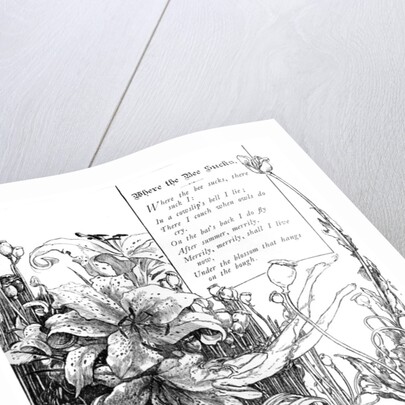 Where the Bee Sucks.
Where the bee sucks, there
suck I:
In a cowslip's bell I lie;
There I couch when owls do
cry.
On the bat's back I do fly
After summer, merrily.
Merrily, merrily, shall I live
now,
Under the blossom that hangs
on the bough.